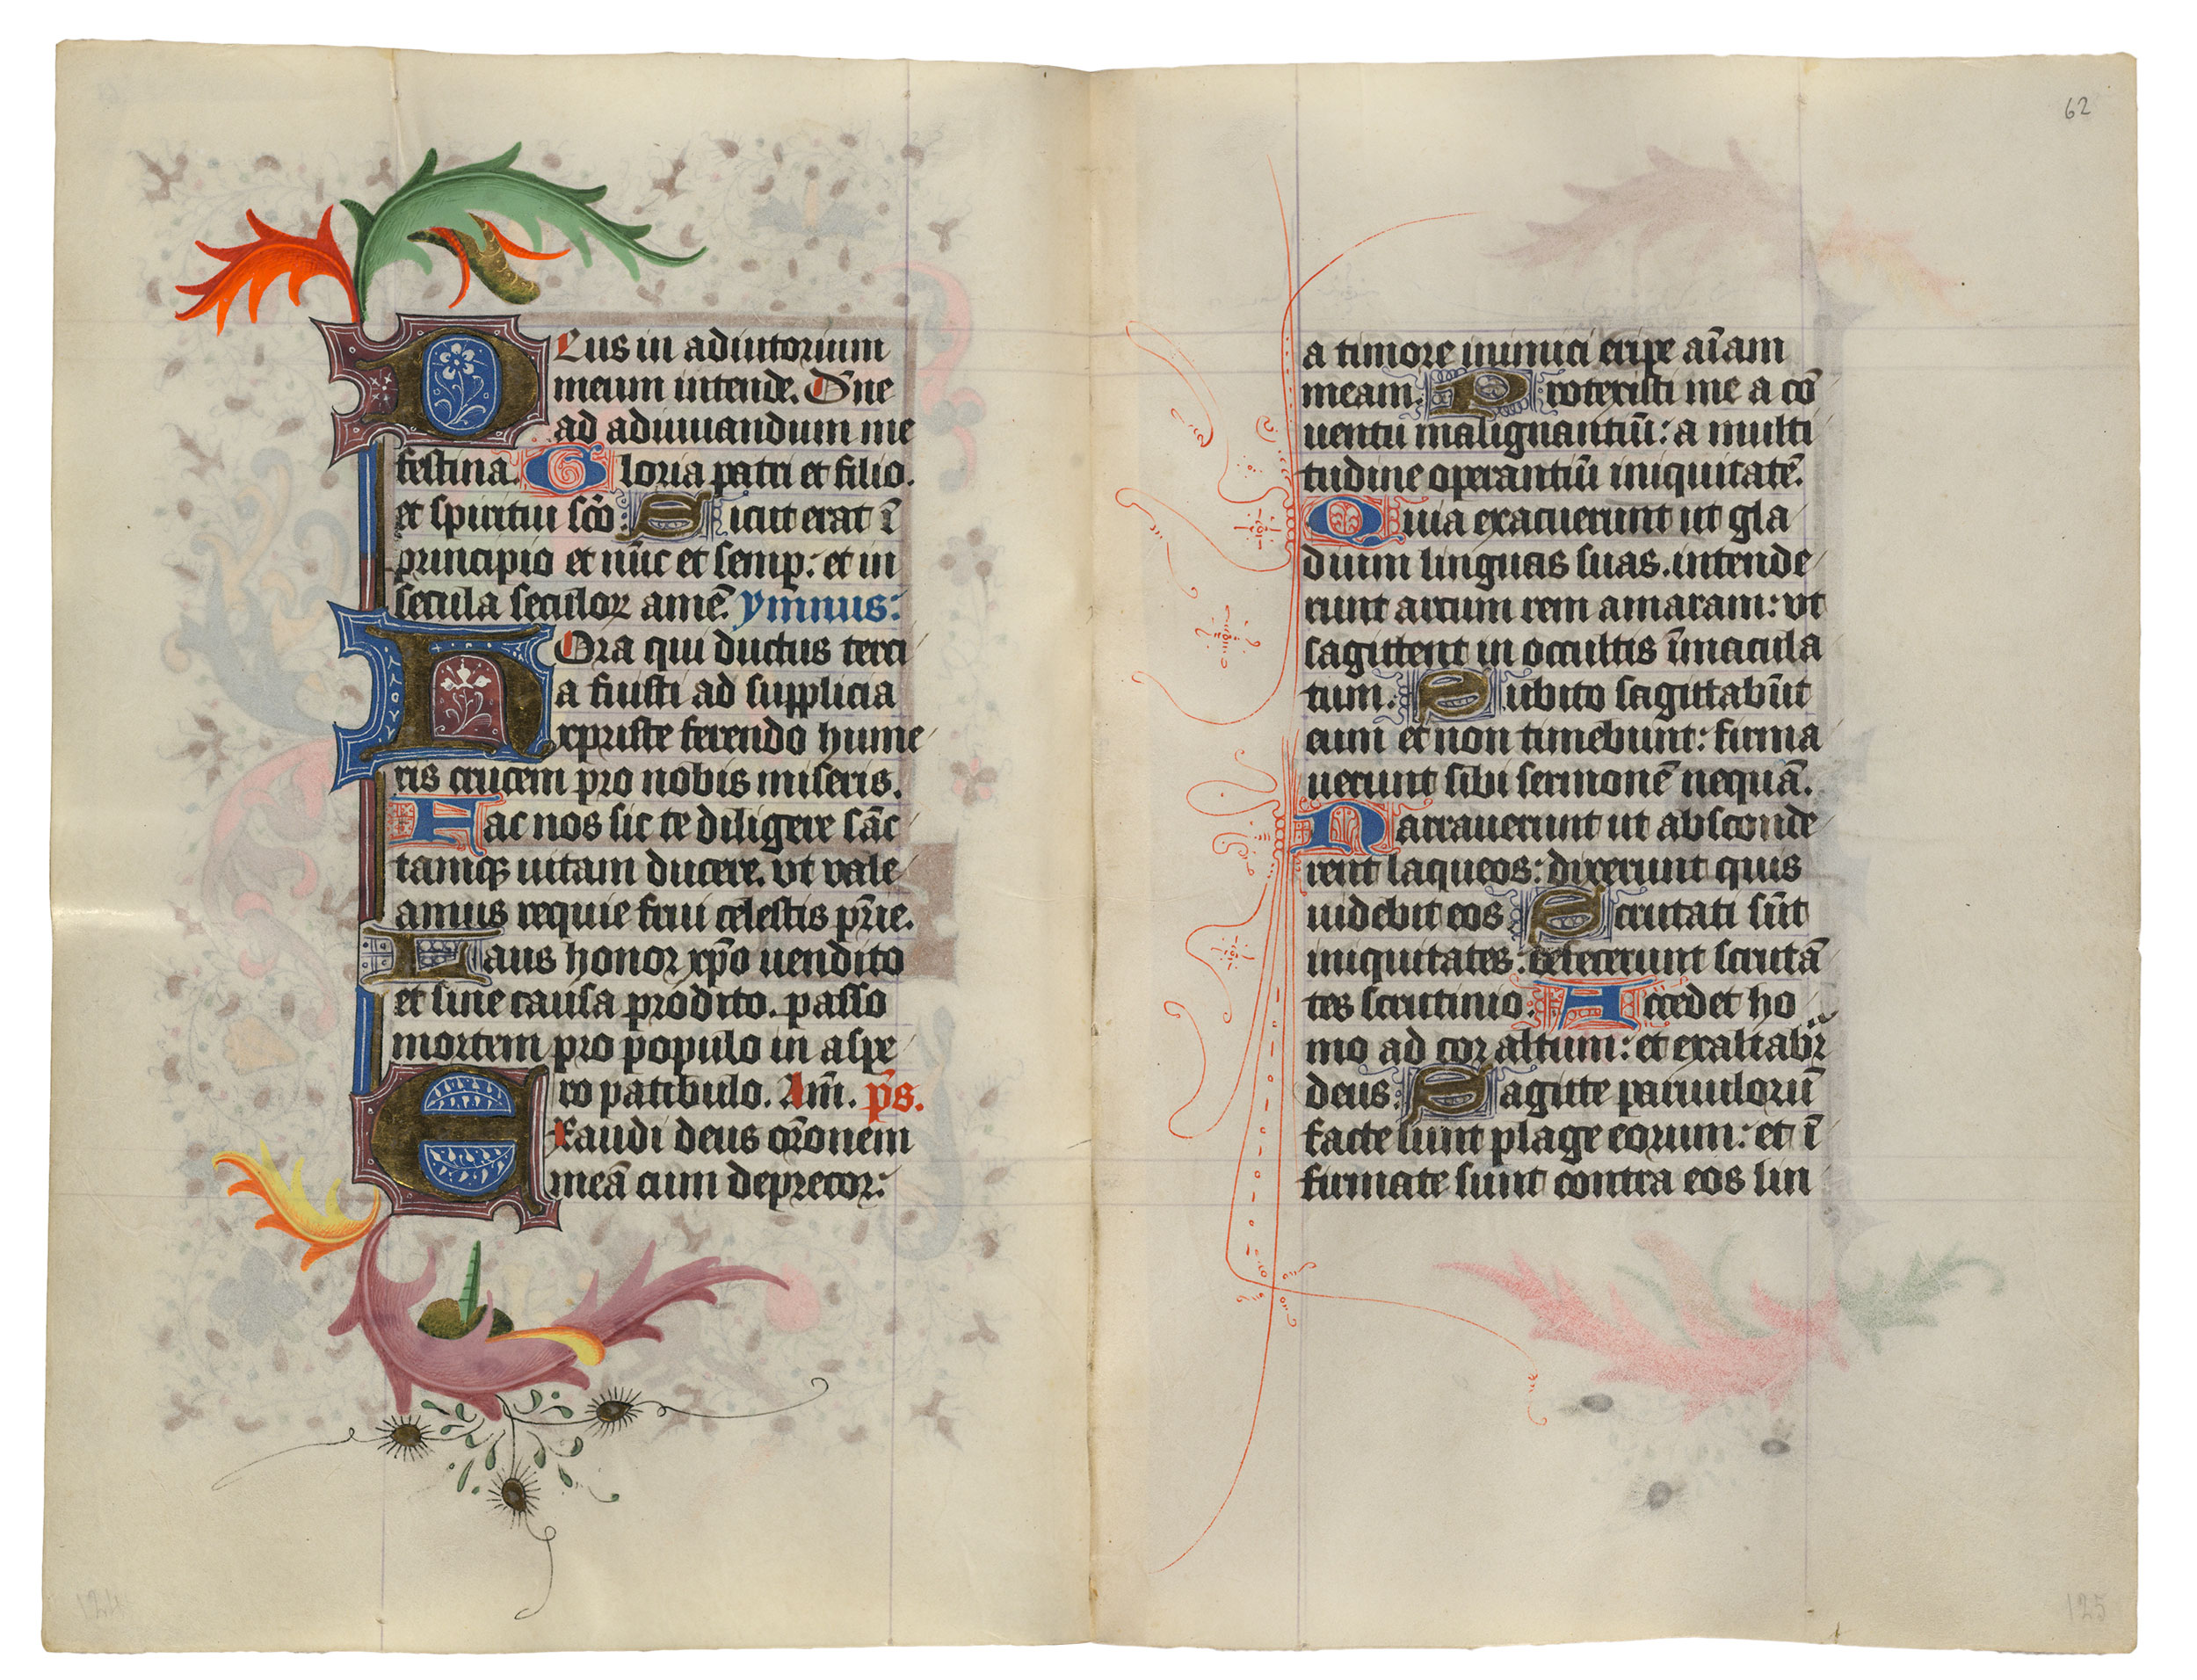 Deus in adiutorium
meum intende. Dn̄e
ad adiuuandum me
festina. Gloria patri et filio.
et spiritui sc̄o: Sicut erat ī
principio et nūc et semp̲: et in
secula seculoꝝ amē. ym̄nus:
Hora qui ductus terci
a fuisti ad supplicia
xpriste ferendo hume
ris crucem pro nobis miseris.
Fac nos sic te diligere sāc
tamqꝫ uitam ducere. vt vale
amus requie frui celestis pr̄ie.
Laus honor xp̄o uendito
et sine causa prodito. passo
mortem pro populo in aspe
ro patibulo. Am̄. p̄s.
Exaudi deus or̄onem
meā cum deprecor:
62
a timore inimici eripe aīam
meam. Protexisti me a cō
uentu malignantiū: a multi
tudine operantiū iniquitatē.
Quia exacuerunt ut gla
dium linguas suas. intende
runt arcum rem amaram: vt
sagittent in occultis īmacula
tum. Subito sagittabūt
eum et non timebunt: firma
uerunt sibi sermonē nequā.
Narrauerunt ut absconde
rent laqueos: dixerunt quis
uidebit eos Scrutati sūt
iniquitates: defecerunt scrutā
tes scrutinio. Accedet ho
mo ad cor altum: et exaltabr̄
deus. Sagitte paruulorū
facte sunt plage eorum: et ī
firmate sunt contra eos lin
125